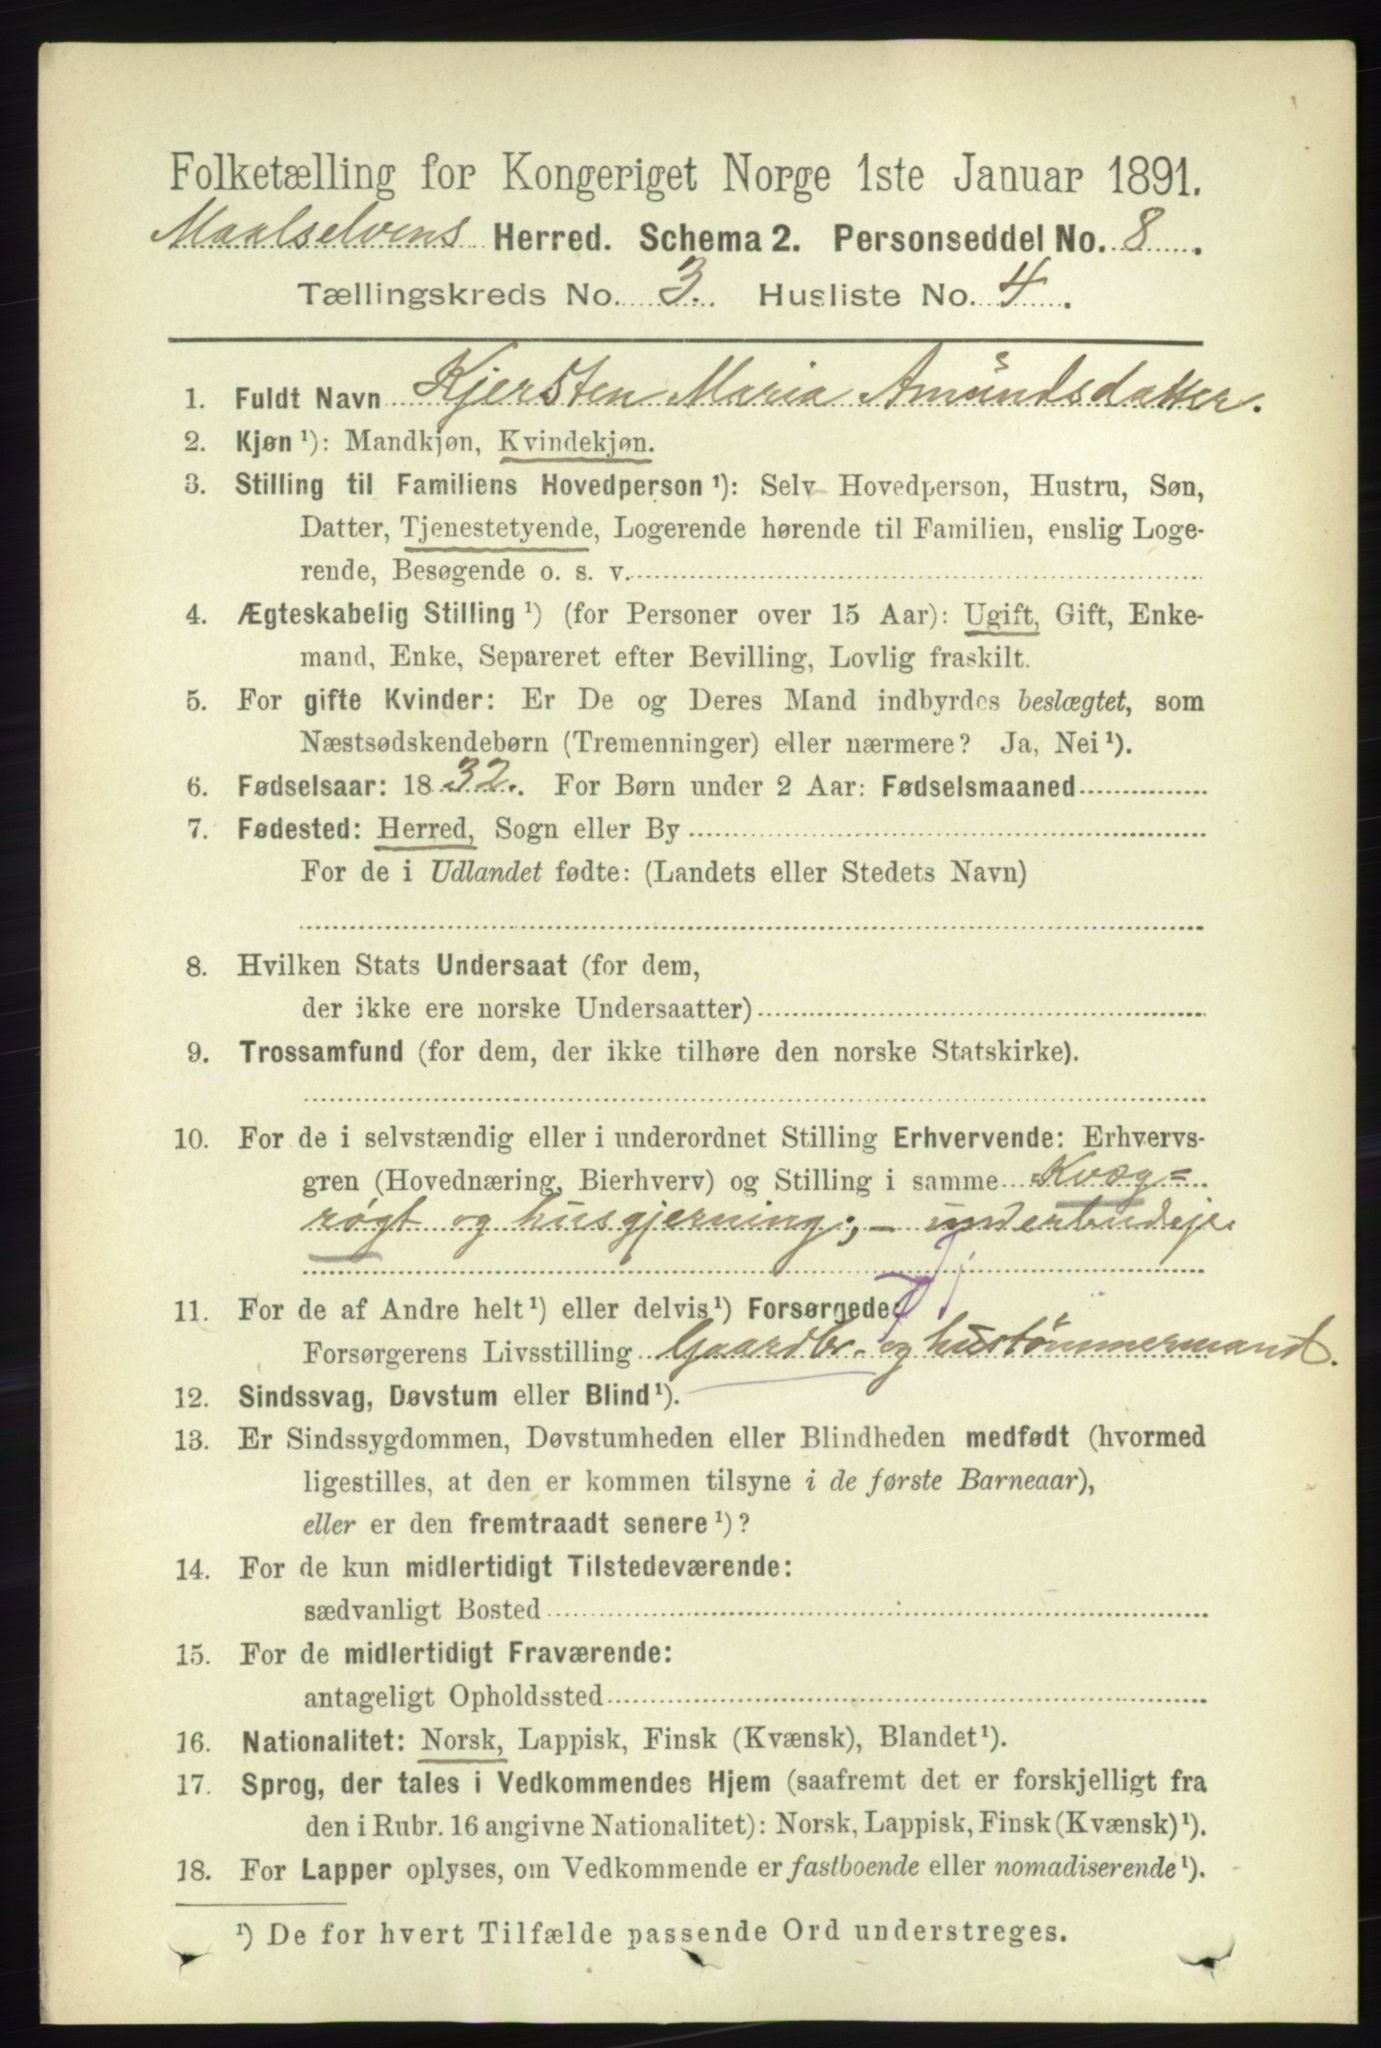 Folketælling for Kongeriget Norge 1ste Januar 1891.
Maalselvens Herred. Schema 2. Personseddel No. 8.
Tællingskreds No. 3. Husliste No. 4.
1. Fuldt Navn Kjersten Maria Amundsdatter.
2. Kjøn ¹): Mandkjøn, Kvindekjøn.
3. Stilling til Familiens Hovedperson ¹): Selv Hovedperson, Hustru, Søn,
Datter, Tjenestetyende, Logerende hørende til Familien, enslig Loge-
rende, Besøgende o. s. v.
4. Ægteskabelig Stilling ¹) (for Personer over 15 Aar): Ugift, Gift, Enke-
mand, Enke, Separeret efter Bevilling, Lovlig fraskilt.
5. For gifte Kvinder: Er De og Deres Mand indbyrdes beslægtet, som
Næstsødskendebørn (Tremenninger) eller nærmere? Ja, Nei ¹).
6. Fødselsaar: 1832. For Børn under 2 Aar: Fødselsmaaned
7. Fødested: Herred, Sogn eller By
For de i Udlandet fødte: (Landets eller Stedets Navn)
8. Hvilken Stats Undersaat (for dem,
der ikke ere norske Undersaatter)
9. Trossamfund (for dem, der ikke tilhøre den norske Statskirke).
10. For de i selvstændig eller i underordnet Stilling Erhvervende: Erhvervs-
gren (Hovednæring, Bierhverv) og Stilling i samme Kvæg=
røgt og husgjerning; - underbudeje.
11. For de af Andre helt ¹) eller delvis ¹) Forsørgede:
Forsørgerens Livsstilling Gaardbr. og hustømmermand.
12. Sindssvag, Døvstum eller Blind ¹).
13. Er Sindssygdommen, Døvstumheden eller Blindheden medfødt (hvormed
ligestilles, at den er kommen tilsyne i de første Barneaar),
eller er den fremtraadt senere ¹)?
14. For de kun midlertidigt Tilstedeværende:
sædvanligt Bosted
15. For de midlertidigt Fraværende:
antageligt Opholdssted
16. Nationalitet: Norsk, Lappisk, Finsk (Kvænsk), Blandet ¹).
17. Sprog, der tales i Vedkommendes Hjem (saafremt det er forskjelligt fra
den i Rubr. 16 angivne Nationalitet): Norsk, Lappisk, Finsk (Kvænsk) ¹).
18. For Lapper oplyses, om Vedkommende er fastboende eller nomadiserende ¹).
¹) De for hvert Tilfælde passende Ord understreges.